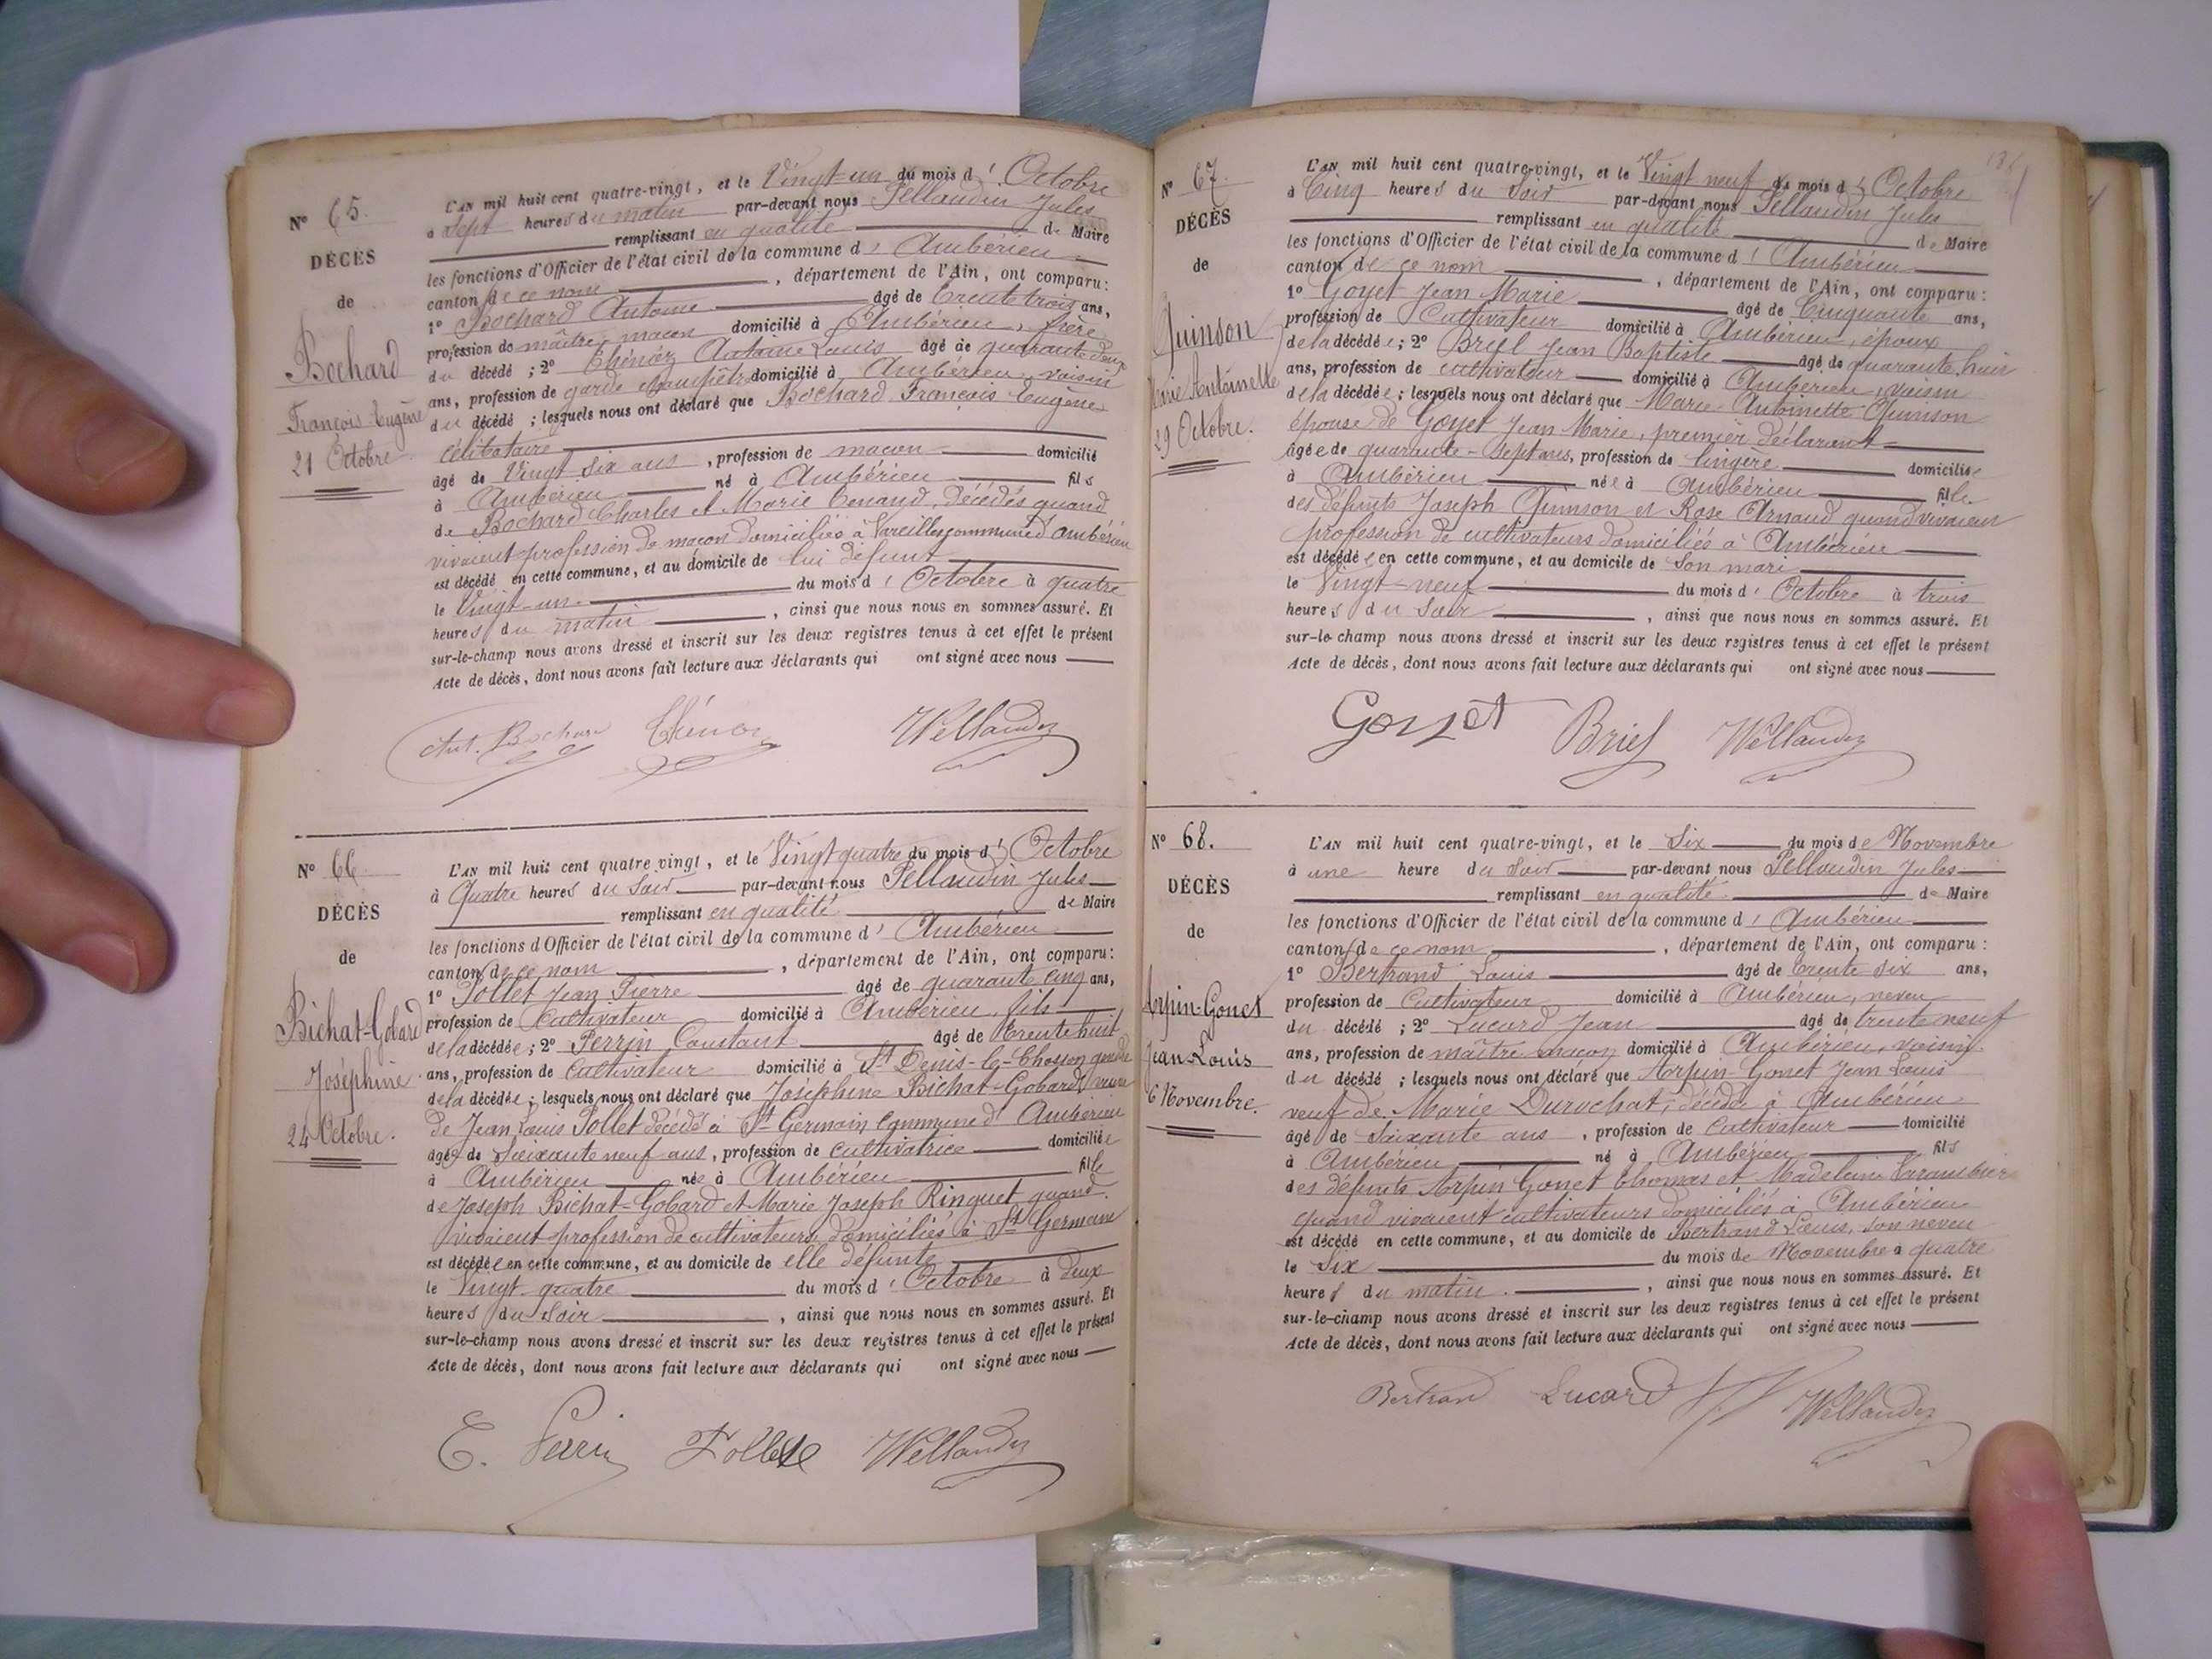 N° 65.
DÉCÈS
de
Bochard
François Eugène
21 Octobre
L'AN mil huit cent quatre-vingt, et le Vingt-un du mois d' Octobre
à Sept heures du matin par-devant nous Pellaudin Jules
remplissant en qualité de Maire
les fonctions d'Officier de l'état civil de la commune d' Ambérieu
canton de ce nom, département de l'Ain, ont comparu:
1° Bochard Antoine âgé de trente trois ans,
profession de maître maçon domicilié à Ambérieu, frère
du décédé ; 2° Antoine Louis âgé de quarante deux
ans, profession de garde champêtre domicilié à Ambérieu, voisin
du décédé ; lesquels nous ont déclaré que Bochard François Eugène
célibataire
âgé de Vingt six ans, profession de maçon domicilié
à Ambérieu né à Ambérieu fils
de Bochard Charles et Marie Tenand, décédés quand
vivaient profession de maçon domiciliés à Vareilles commune d'Ambérieu
est décédé en cette commune, et au domicile de lui défunt
le Vingt-un du mois d' Octobre à quatre
heures du matin, ainsi que nous nous en sommes assuré. Et
sur-le-champ nous avons dressé et inscrit sur les deux registres tenus à cet effet le présent
Acte de décès, dont nous avons fait lecture aux déclarants qui ont signé avec nous
Ant. Bochard
N° 66
DÉCÈS
de
Bichat-Gobard
Joséphine
24 Octobre.
L'AN mil huit cent quatre vingt, et le Vingt quatre du mois d' Octobre
à Quatre heures du Soir par-devant nous Pellaudin Jules
remplissant en qualité de Maire
les fonctions d'Officier de l'état civil de la commune d' Ambérieu
canton de ce nom, département de l'Ain, ont comparu:
1° Pollet Jean Pierre âgé de quarante cinq ans,
profession de Cultivateur domicilié à Ambérieu, fils
de la décédée ; 2° Perrin Constant âgé de trente huit
ans, profession de Cultivateur domicilié à St Denis-le-Chosson gendre
de la décédée ; lesquels nous ont déclaré que Joséphine Bichat-Gobard, veuve
de Jean Louis Pollet décédé à St Germain commune d' Ambérieu
âgée de Soixante neuf ans, profession de cultivatrice domiciliée
à Ambérieu née à Ambérieu fille
de Joseph Bichat-Gobard et Marie Joseph Ringuet quand
vivaient profession de cultivateurs domiciliés à St Germain
est décédée en cette commune, et au domicile de elle défunte
le Vingt quatre du mois d' Octobre à deux
heures du Soir, ainsi que nous nous en sommes assuré. Et
sur-le-champ nous avons dressé et inscrit sur les deux registres tenus à cet effet le présent
Acte de décès, dont nous avons fait lecture aux déclarants qui ont signé avec nous
N° 67.
DÉCÈS
de
Quinson
Marie Antoinette
29 Octobre.
L'AN mil huit cent quatre-vingt, et le Vingt neuf du mois d' Octobre
à Cinq heures du Soir par-devant nous Pellaudin Jules
remplissant en qualité de Maire
les fonctions d'Officier de l'état civil de la commune d' Ambérieu
canton de ce nom, département de l'Ain, ont comparu:
1° Goyet Jean Marie âgé de Cinquante ans,
profession de Cultivateur domicilié à Ambérieu, époux
de la décédée ; 2° Brief Jean Baptiste âgé de quarante huit
ans, profession de cultivateur domicilié à Ambérieu, voisin
de la décédée ; lesquels nous ont déclaré que Marie Antoinette Quinson
épouse de Goyet Jean Marie, premier déclarant
âgée de quarante-sept ans, profession de lingère domiciliée
à Ambérieu née à Ambérieu fille
des défunts Joseph Quinson et Rose Arnaud quand vivaient
profession de cultivateurs domiciliés à Ambérieu
est décédée en cette commune, et au domicile de son mari
le Vingt-neuf du mois d' Octobre à trois
heures du Soir, ainsi que nous nous en sommes assuré. Et
sur-le-champ nous avons dressé et inscrit sur les deux registres tenus à cet effet le présent
Acte de décès, dont nous avons fait lecture aux déclarants qui ont signé avec nous
Goyet Brief
N° 68.
DÉCÈS
de
Arpin-Gonet
Jean Louis
6 Novembre.
L'AN mil huit cent quatre-vingt, et le Six du mois de Novembre
à une heure du Soir par-devant nous Pellaudin Jules
remplissant en qualité de Maire
les fonctions d'Officier de l'état civil de la commune d' Ambérieu
canton de ce nom, département de l'Ain, ont comparu :
1° Bertrand Louis âgé de trente six ans,
profession de Cultivateur domicilié à Ambérieu, neveu
du décédé ; 2° Lucard Jean âgé de trente neuf
ans, profession de maître maçon domicilié à Ambérieu, voisin
du décédé ; lesquels nous ont déclaré que Arpin-Gonet Jean Louis
veuf de Marie Durochat, décédée à Ambérieu
âgé de Soixante ans, profession de Cultivateur domicilié
à Ambérieu né à Ambérieu fils
des défunts Arpin Gonet Thomas et Madeleine
quand vivaient cultivateurs domiciliés à Ambérieu
est décédé en cette commune, et au domicile de Bertrand Louis, son neveu
le Six du mois de Novembre à quatre
heures du matin, ainsi que nous nous en sommes assuré. Et
sur-le-champ nous avons dressé et inscrit sur les deux registres tenus à cet effet le présent
Acte de décès, dont nous avons fait lecture aux déclarants qui ont signé avec nous
Bertrand Lucard